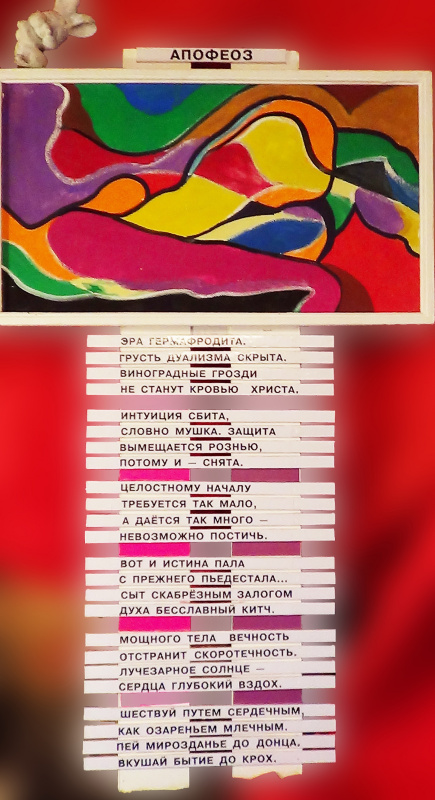 АПОФЕОЗ
ЭРА ГЕРМАФРОДИТА.
ГРУСТЬ ДУАЛИЗМА СКРЫТА.
ВИНОГРАДНЫЕ ГРОЗДИ
НЕ СТАНУТ КРОВЬЮ ХРИСТА.
ИНТУИЦИЯ СБИТА,
СЛОВНО МУШКА. ЗАЩИТА
ВЫМЕЩАЕТСЯ РОЗНЬЮ,
ПОТОМУ И – СНЯТА.
ЦЕЛОСТНОМУ НАЧАЛУ
ТРЕБУЕТСЯ ТАК МАЛО,
А ДАЁТСЯ ТАК МНОГО –
НЕВОЗМОЖНО ПОСТИЧЬ.
ВОТ И ИСТИНА ПАЛА
С ПРЕЖНЕГО ПЬЕДЕСТАЛА...
СЫТ СКАБРЁЗНЫМ ЗАЛОГОМ
ДУХА БЕССЛАВНЫЙ КИТЧ.
МОЩНОГО ТЕЛА ВЕЧНОСТЬ
ОТСТРАНИТ СКОРОТЕЧНОСТЬ.
ЛУЧЕЗАРНОЕ СОЛНЦЕ –
СЕРДЦА ГЛУБОКИЙ ВЗДОХ.
ШЕСТВУЙ ПУТЕМ СЕРДЕЧНЫМ,
КАК ОЗАРЕНЬЕМ МЛЕЧНЫМ.
ПЕЙ МИРОЗДАНЬЕ ДО ДОНЦА.
ВКУШАЙ БЫТИЕ ДО КРОХ.